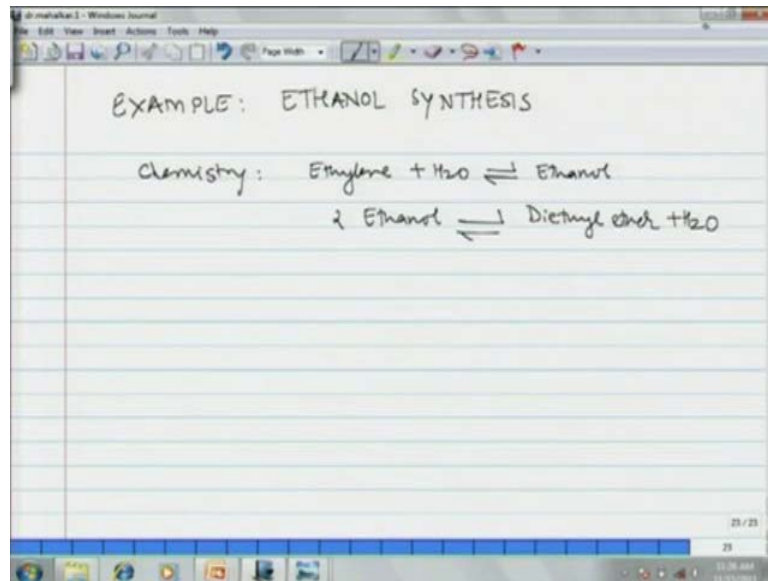 dr.mahalkar.1 - Windows Journal
File Edit View Insert Actions Tools Help
Page Width
EXAMPLE: ETHANOL SYNTHESIS
Chemistry: Ethylene + H2O ⇌ Ethanol
2 Ethanol ⇌ Diethyl ether + H2O
23 / 23
23
11:26 AM